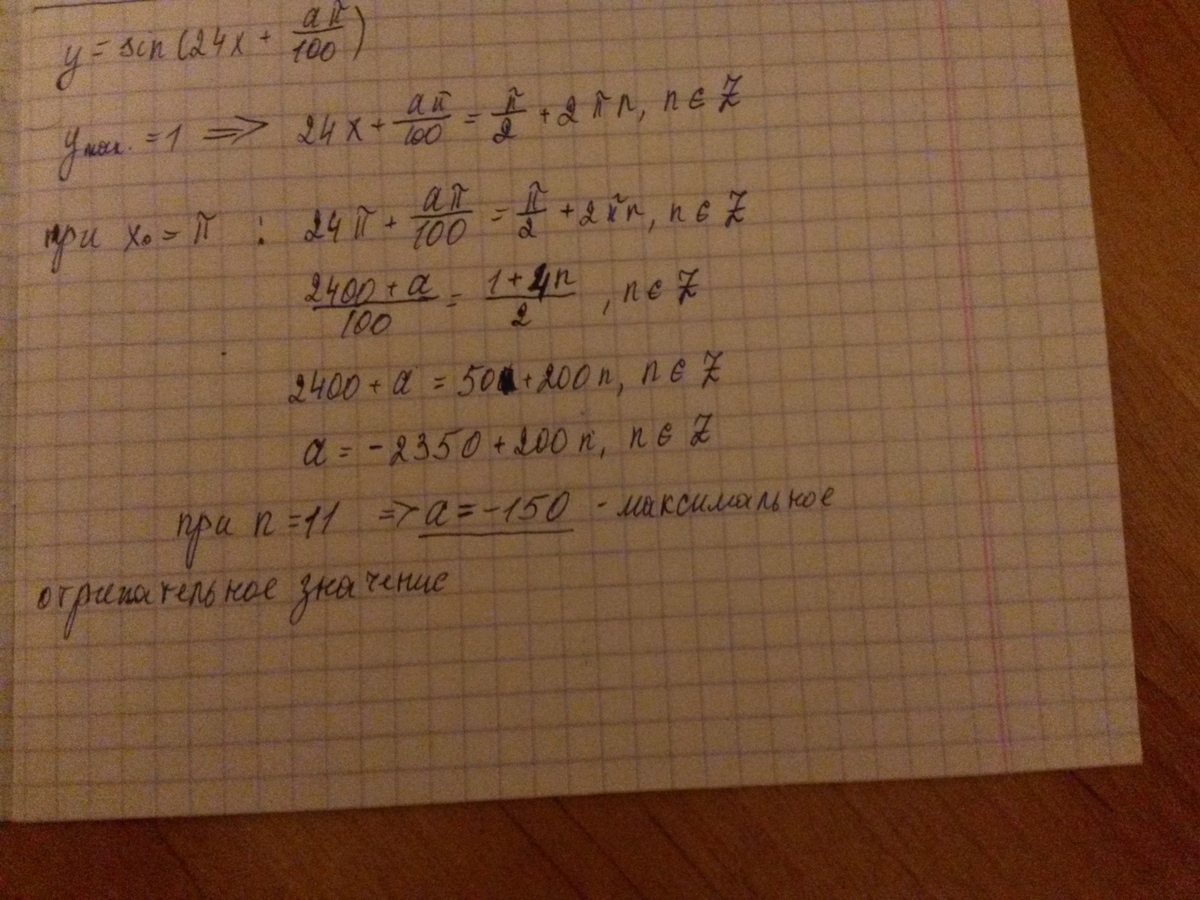 y = sin(24x + aπ/100)
y max. = 1 => 24x + aπ/100 = π/2 + 2πn, n ∈ Z
при x₀ = π : 24π + aπ/100 = π/2 + 2πn, n ∈ Z
(2400 + a)/100 = (1 + 4n)/2, n ∈ Z
2400 + a = 50 + 200n, n ∈ Z
a = -2350 + 200n, n ∈ Z
при n = 11 => a = -150 - максимальное
отрицательное значение